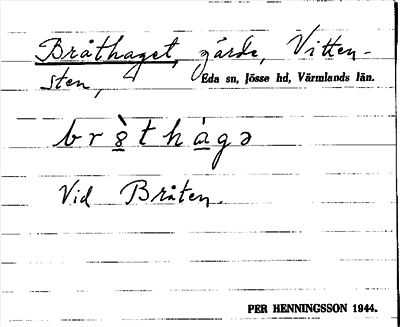 Bråthaget, gärde, Vitten-
sten, Eda sn, Jösse hd, Värmlands län.
br8̲̀th̀a̲gə
Vid Bråten.
PER HENNINGSSON 1944.